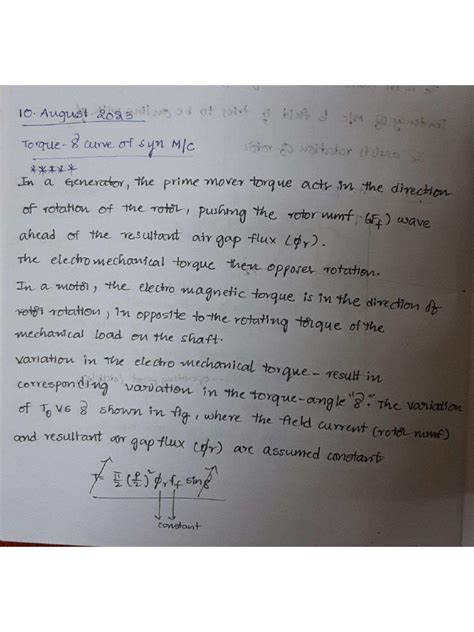 10. August 2023
Torque-δ curve of syn M/C
*****
In a Generator, the prime mover torque acts in the direction
of rotation of the rotor, pushing the rotor mmf (Ff) wave
ahead of the resultant air gap flux (ϕr).
The electromechanical torque then opposes rotation.
In a motor, the electro magnetic torque is in the direction of
rotor rotation, in opposite to the rotating torque of the
mechanical load on the shaft.
variation in the electro mechanical torque - result in
corresponding variation in the torque-angle "δ". The variation
of Te vs δ shown in fig, where the field current (rotor mmf)
and resultant air gap flux (ϕr) are assumed constant
T = π/2 (P/2)² ϕr Ff sin δ
constant